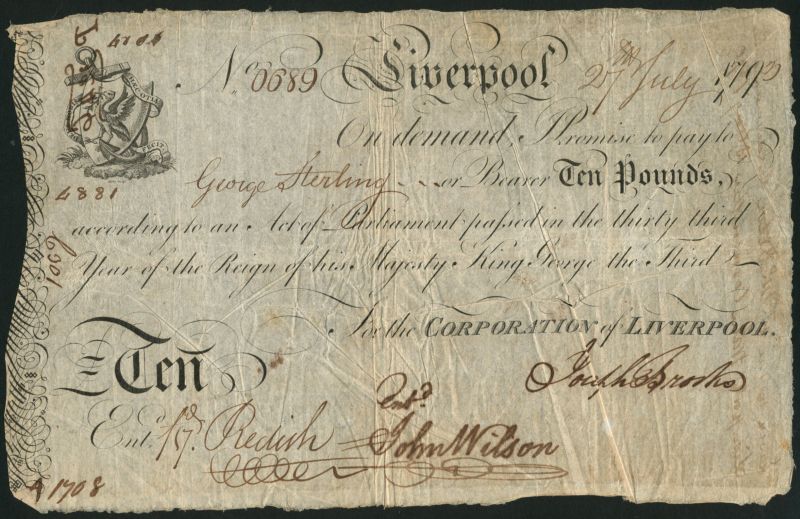 4014
No. 0689 Liverpool 27th July 1793
DEUS NOBIS HÆC OTIA FECIT
On demand, I Promise to pay to
George Sterling - - - or Bearer Ten Pounds,
4881
according to an Act of Parliament passed in the thirty third
1069
Year of the Reign of his Majesty King George the Third
For the CORPORATION of LIVERPOOL.
Ten
Joseph Brooks
Ent'd
Ent'd Redish John Wilson
1708